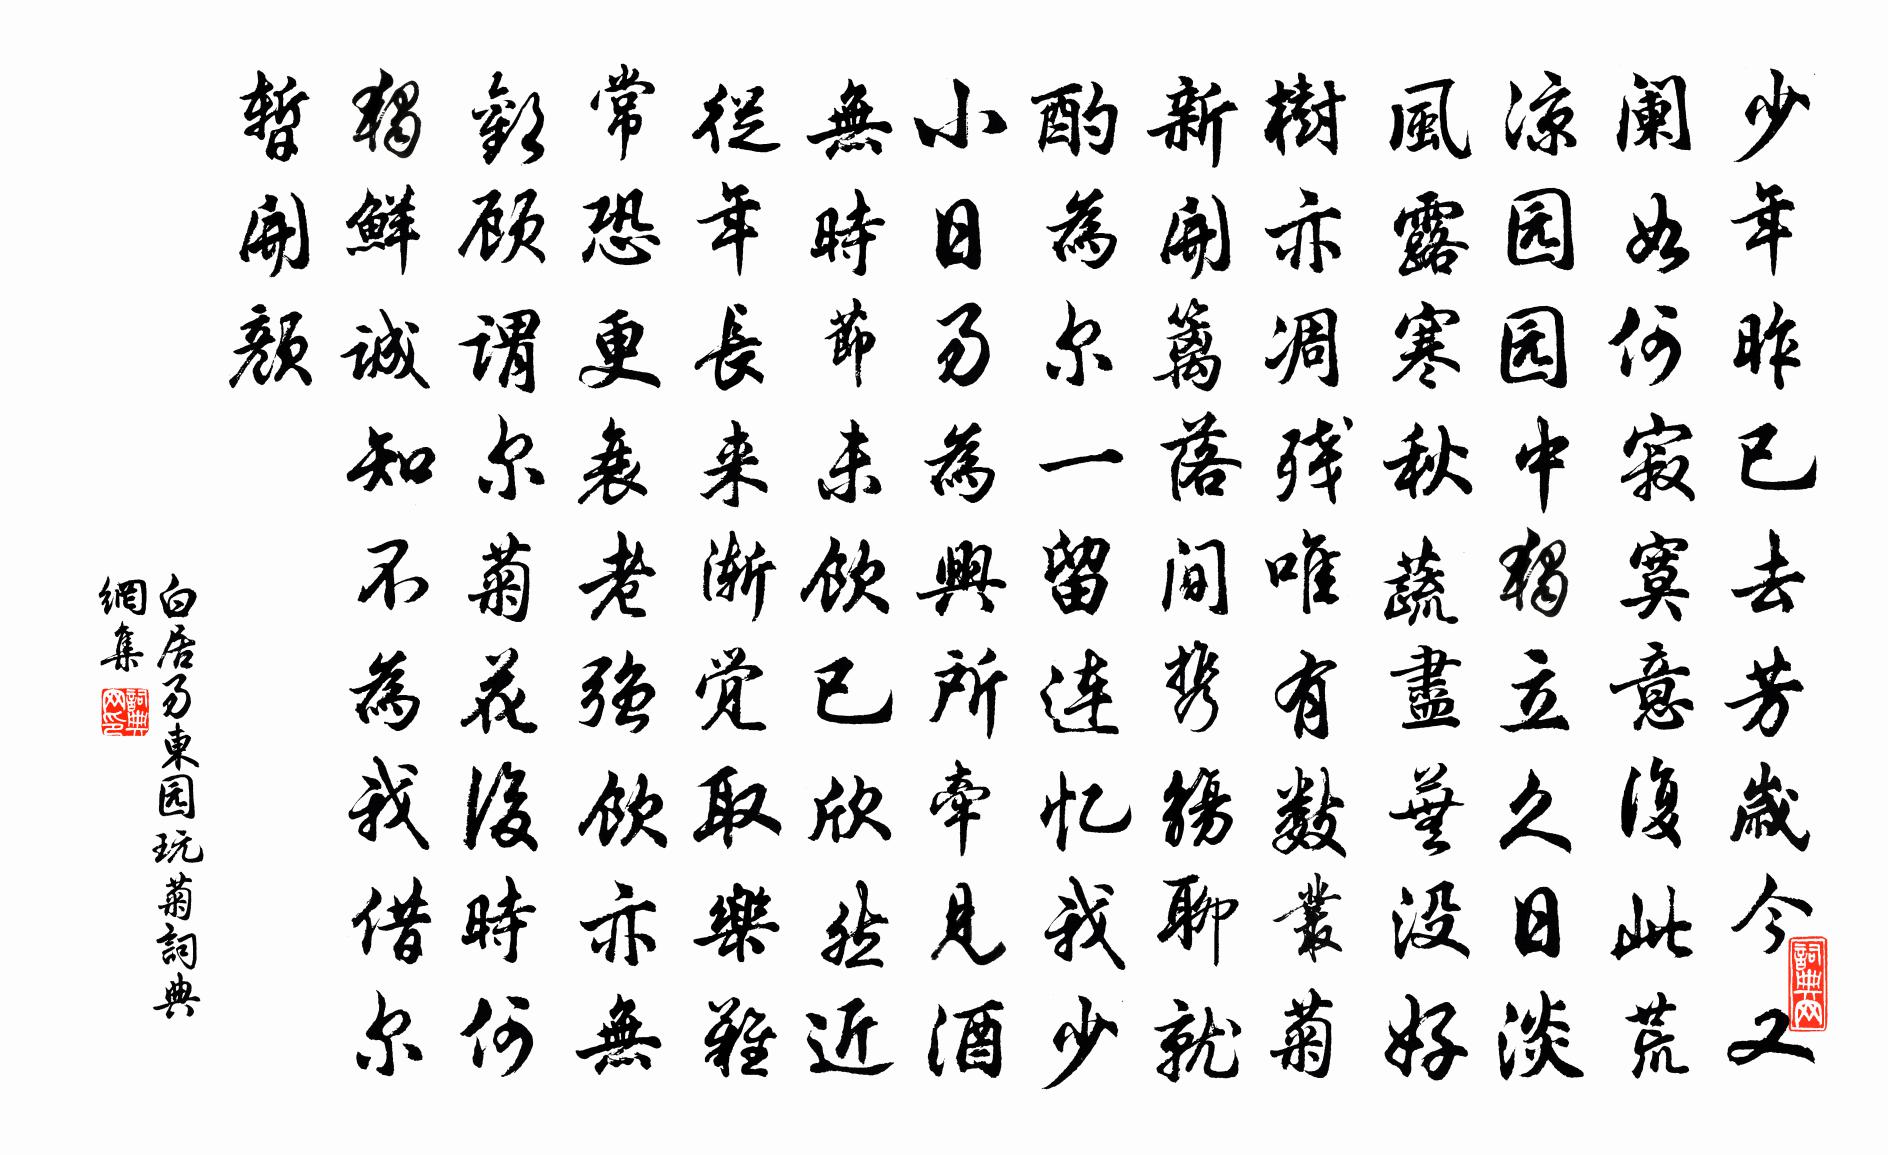 少年昨已去芳歲今又
阑如何寂寞意復此荒
凉园园中獨立久日淡
風露寒秋蔬盡蕪没好
樹亦凋残唯有数叢菊
新開籬落间携觴聊就
酌為尔一留连忆我少
小日易為興所牵見酒
無時節未飲已欣然近
從年長来渐觉取樂難
常恐更衰老强飲亦無
歡顾谓尔菊花後時何
獨鮮誠知不為我借尔
暫開颜
白居易東园玩菊詞典
網集
詞典网
詞典网印